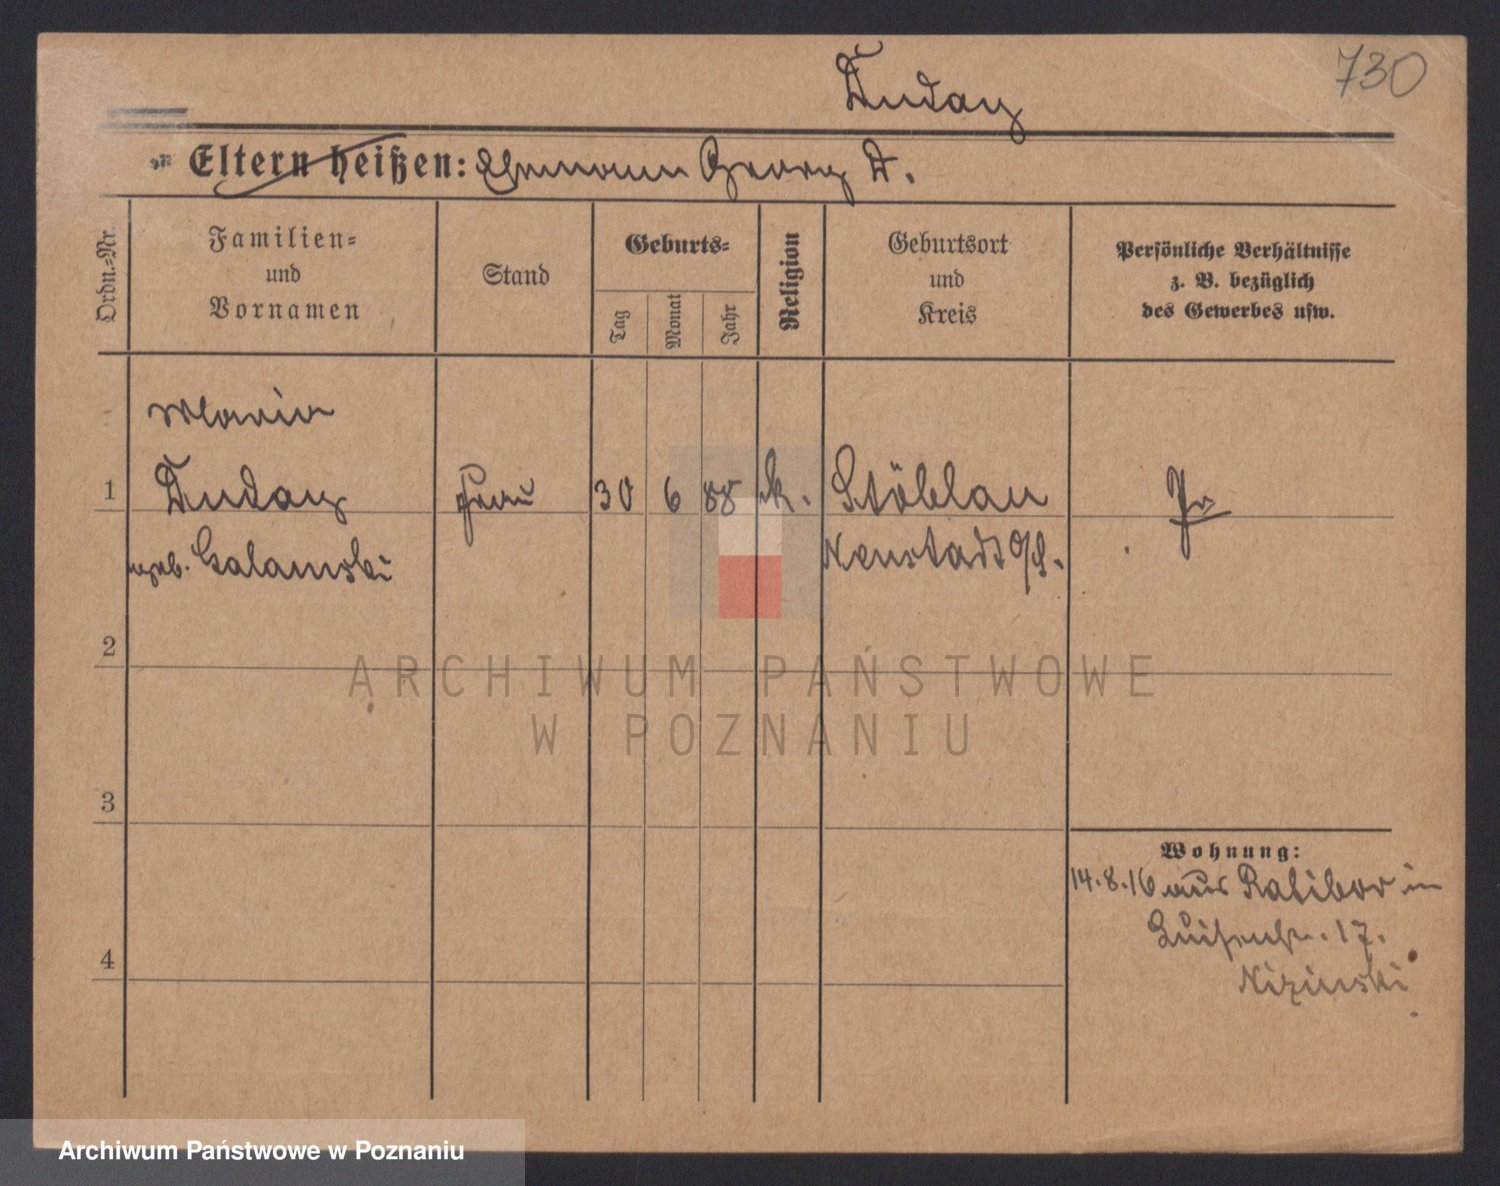 Duday
730
Eltern heißen: Ehemann Georg D.
Ordn.-Nr.
Familien-
und
Vornamen
Stand
Geburts-
Tag
Monat
Jahr
Religion
Geburtsort
und
Kreis
Persönliche Verhältnisse
z. B. bezüglich
des Gewerbes usw.
Maria
1 Duday Frau 30 6 88 k. Stöblau
geb. Galanski Neustadt O/S.
2
3
4
Wohnung:
14.8.16 aus Ratibor in
Luisenstr. 17.
Nizinski
ARCHIWUM PAŃSTWOWE
W POZNANIU
Archiwum Państwowe w Poznaniu